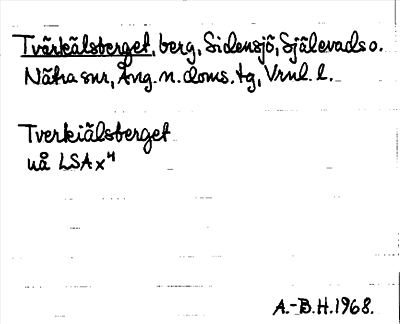 Tvärkälsberget, berg, Sidensjö, Själevads o.
Nätra snr, Ång. n. doms. tg, Vrnl. l.
Tverkiälsberget
uå LSA x4
A.-B.H. 1968.